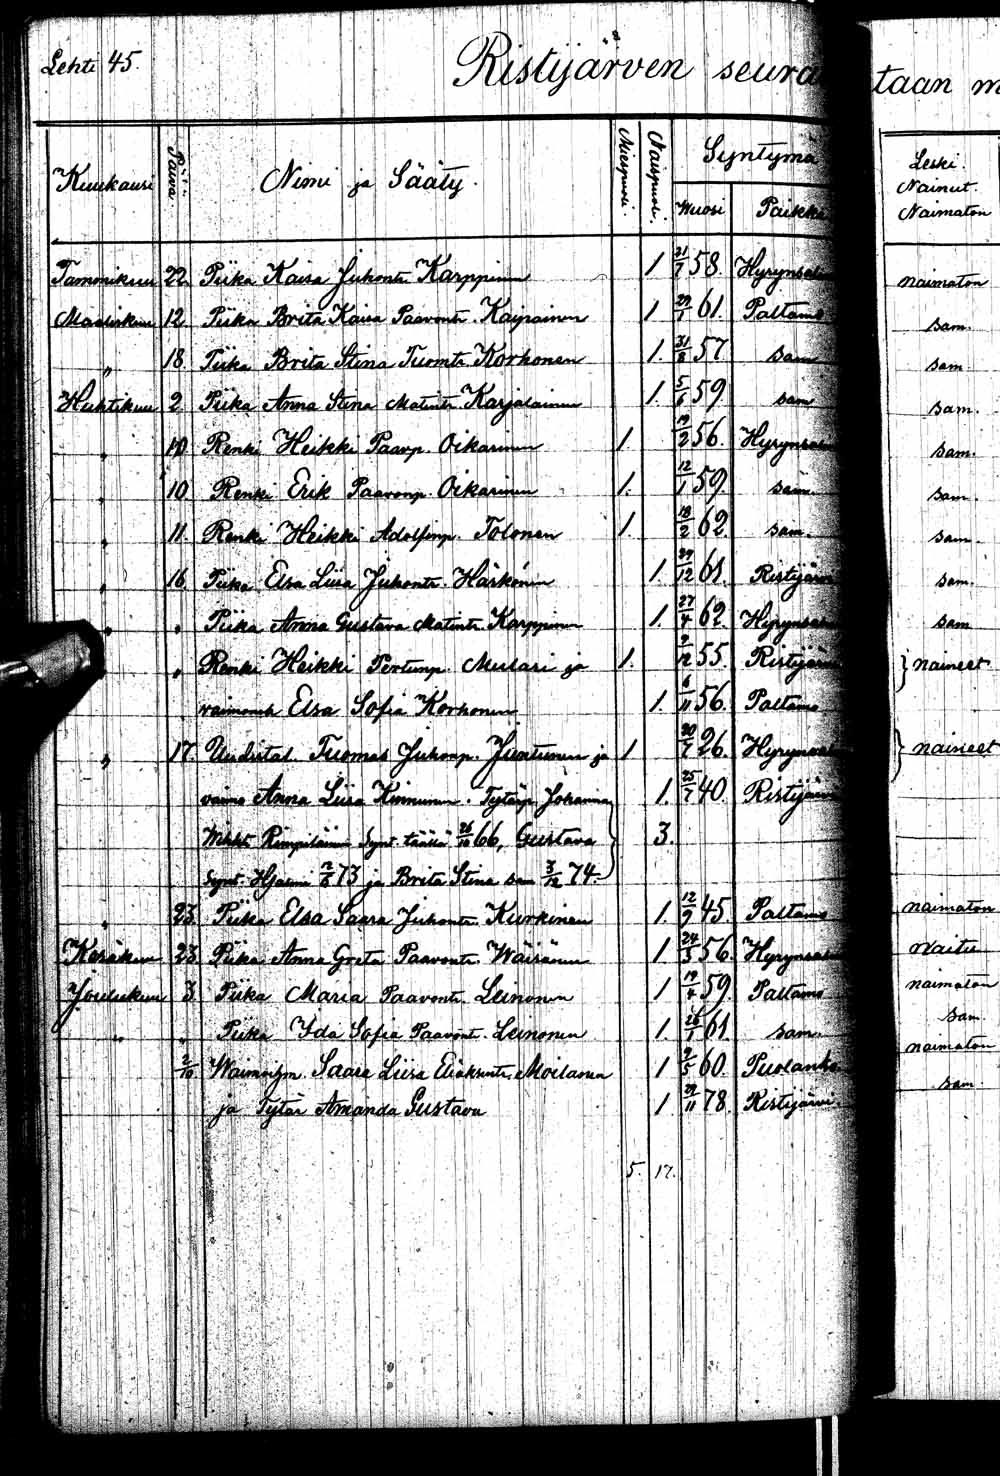 Lehti 45.
Ristijärven seura taan m
Kuukausi Päivä Nimi ja Sääty. Miespuoli. Naispuoli. Syntymä Leski.
Wuosi Paikka Nainut.
Naimaton
Tammikuu 22. Piika Kaisa Juhontr Karppinen 1 21/7 58. Hyrynsalmi naimaton
Maaliskuu 12. Piika Brita Kaisa Paavontr. Kaipainen 1 29/1 61. Paltamo sam.
" 18. Piika Brita Stina Tuomtr. Korhonen 1. 31/8 57. sam sam.
Huhtikuu 2 Piika Anna Stina Matintr. Karjalainen 1. 5/6 59 sam sam.
" 10. Renki Heikki Paavp. Oikarinen 1. 19/2 56. Hyrynsalmi sam.
" 10 Renki Erik Paavonp. Oikarinen 1. 12/1 59. sam. sam.
" 11. Renki Heikki Adolfinp. Tolonen 1. 18/2 62. sam. sam.
" 16. Piika Elsa Liisa Juhontr. Härkönen 1. 29/12 61. Ristijärvi sam.
" " Piika Anna Gustava Matintr. Karppinen 1. 27/4 62. Hyrynsalmi sam
" Renki Heikki Perttunp. Mulari ja 1. 2/12 55. Ristijärvi } naineet
waimonsa Elsa Sofia Korhonen 1. 6/11 56. Paltamo
" 17. Uudistal. Tuomas Juhonp. Juntunen ja 1 20/7 26. Hyrynsalmi } naineet
vaimo Anna Liisa Kinnunen. Tytärp. Johanna 1. 25/7 40. Ristijärvi
Rimpiläinen Synt. täällä 26/10 66, Gustava 3.
Synt. 73 ja Brita Stina sam 3/12 74.
" 23. Piika Elsa Saara Juhontr. Kurkinen 1. 12/9 45. Paltamo naimaton
Kesäkuu 23. Piika Anna Greta Paavontr. Wäisänen 1 24/3 56. Hyrynsalmi naitu
Joulukuu 3. Piika Maria Paavontr. Leinonen 1 19/4 59. Paltamo naimaton
" " Piika Ida Sofia Paavontr. Leinonen 1. 26/1 61. sam. sam.
2/10. Saara Liisa Moilanen 1 9/5 60. Puolanka naimaton
ja Tytär Amanda Gustava 1 29/11 78. Ristijärvi sam.
5. 17.